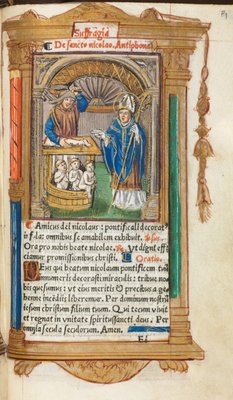 Suffragia
De sancto nicolao. Antiphona
Amicus dei nicolaus: pontificali decorat
infula: omnibus se amabilem exhibuit.
Ora pro nobis beate nicolae. Ut digni effi
ciamur promissionibus christi. Oratio.
Deus qui beatum nicolaum pontificem tuum
innumeris decorasti miraculis: tribue no
bis quesumus: ut eius meritis et precibus a ge
henne incendiis liberemur. Per dominum nostrum
iesum christum filium tuum. Qui tecum vivit
et regnat in unitate spiritussancti deus. Per
omnia secula seculorum. Amen.